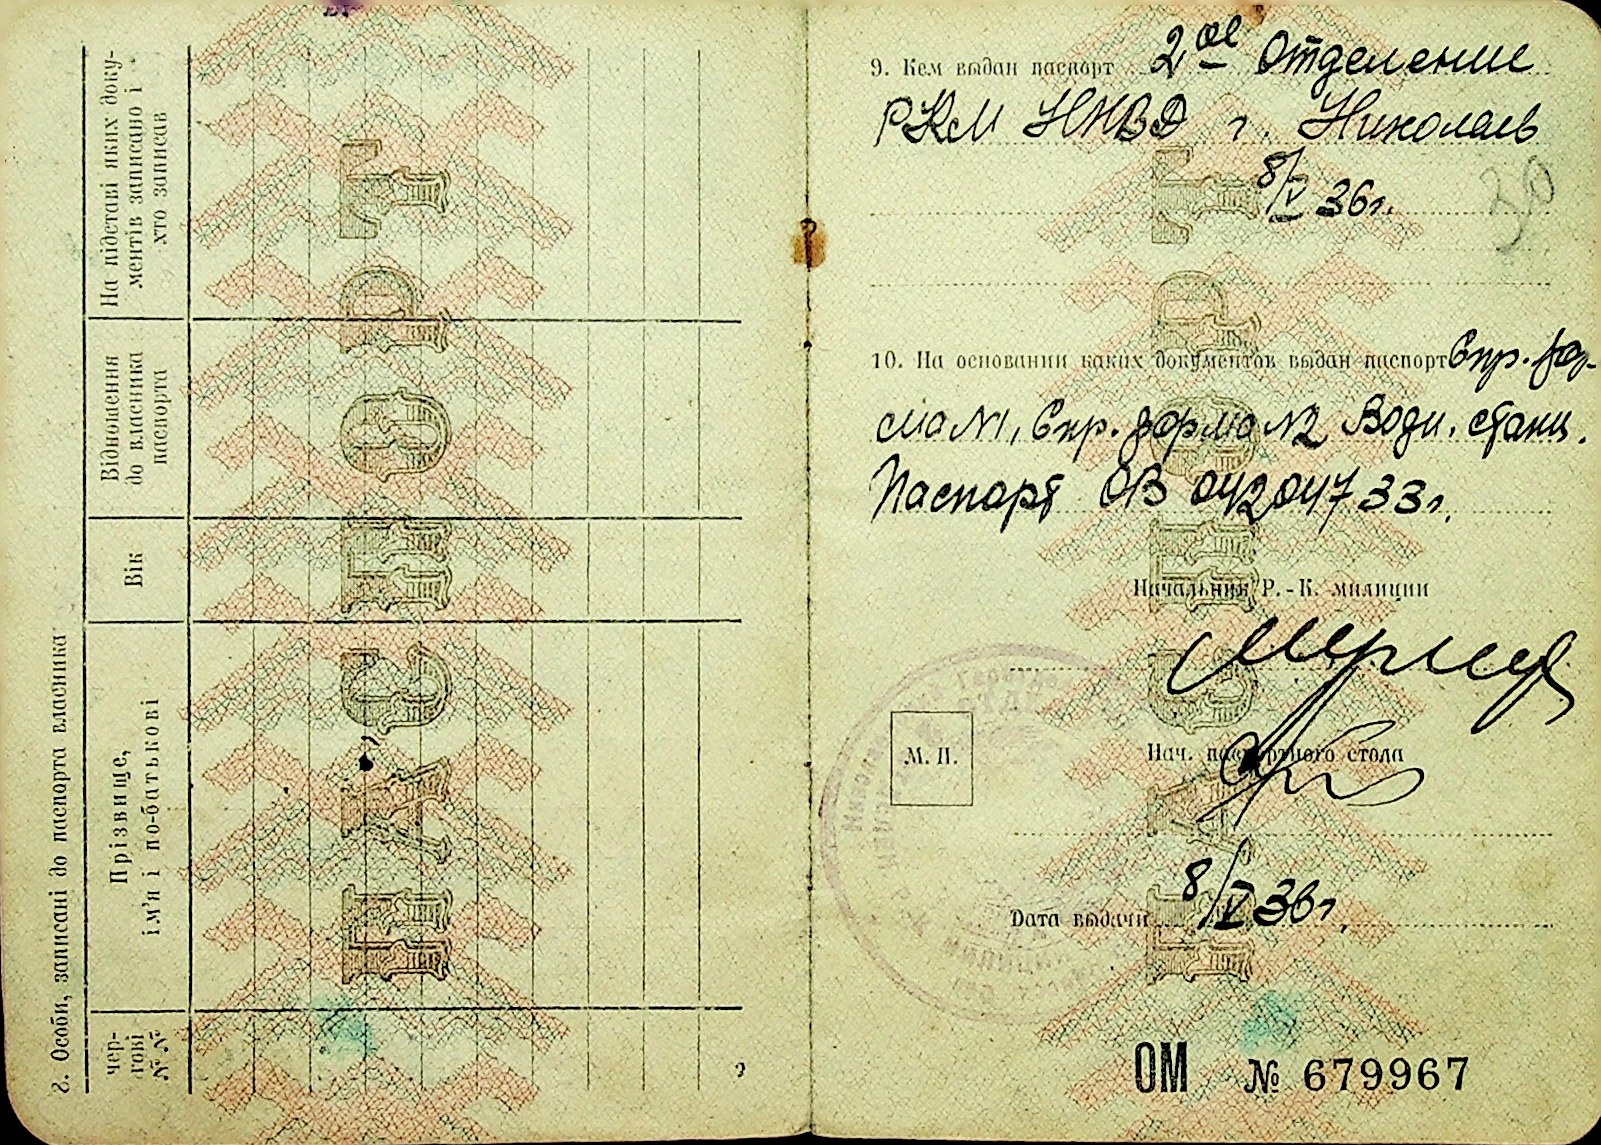 2. Особи, записані до паспорта власника
чер-
гові
№№
Прізвище,
ім'я і по-батькові
Вік
Відношення
до власника
паспорта
На підставі яких доку-
ментів записано і
хто записав
ПАСПОРТ
9. Кем выдан паспорт 2ое Отделение
РКМ НКВД г. Николаев
8/V 36г.
30
10. На основании каких документов выдан паспорт Спр. фор-
ма №1, Спр. форма №2 станц.
Паспорт ОВ 042047 33г.
Начальник Р.-К. милиции
М. П.
Нач. паспортного стола
Дата выдачи 8/V 36г.
ПАСПОРТ
ОМ № 679967